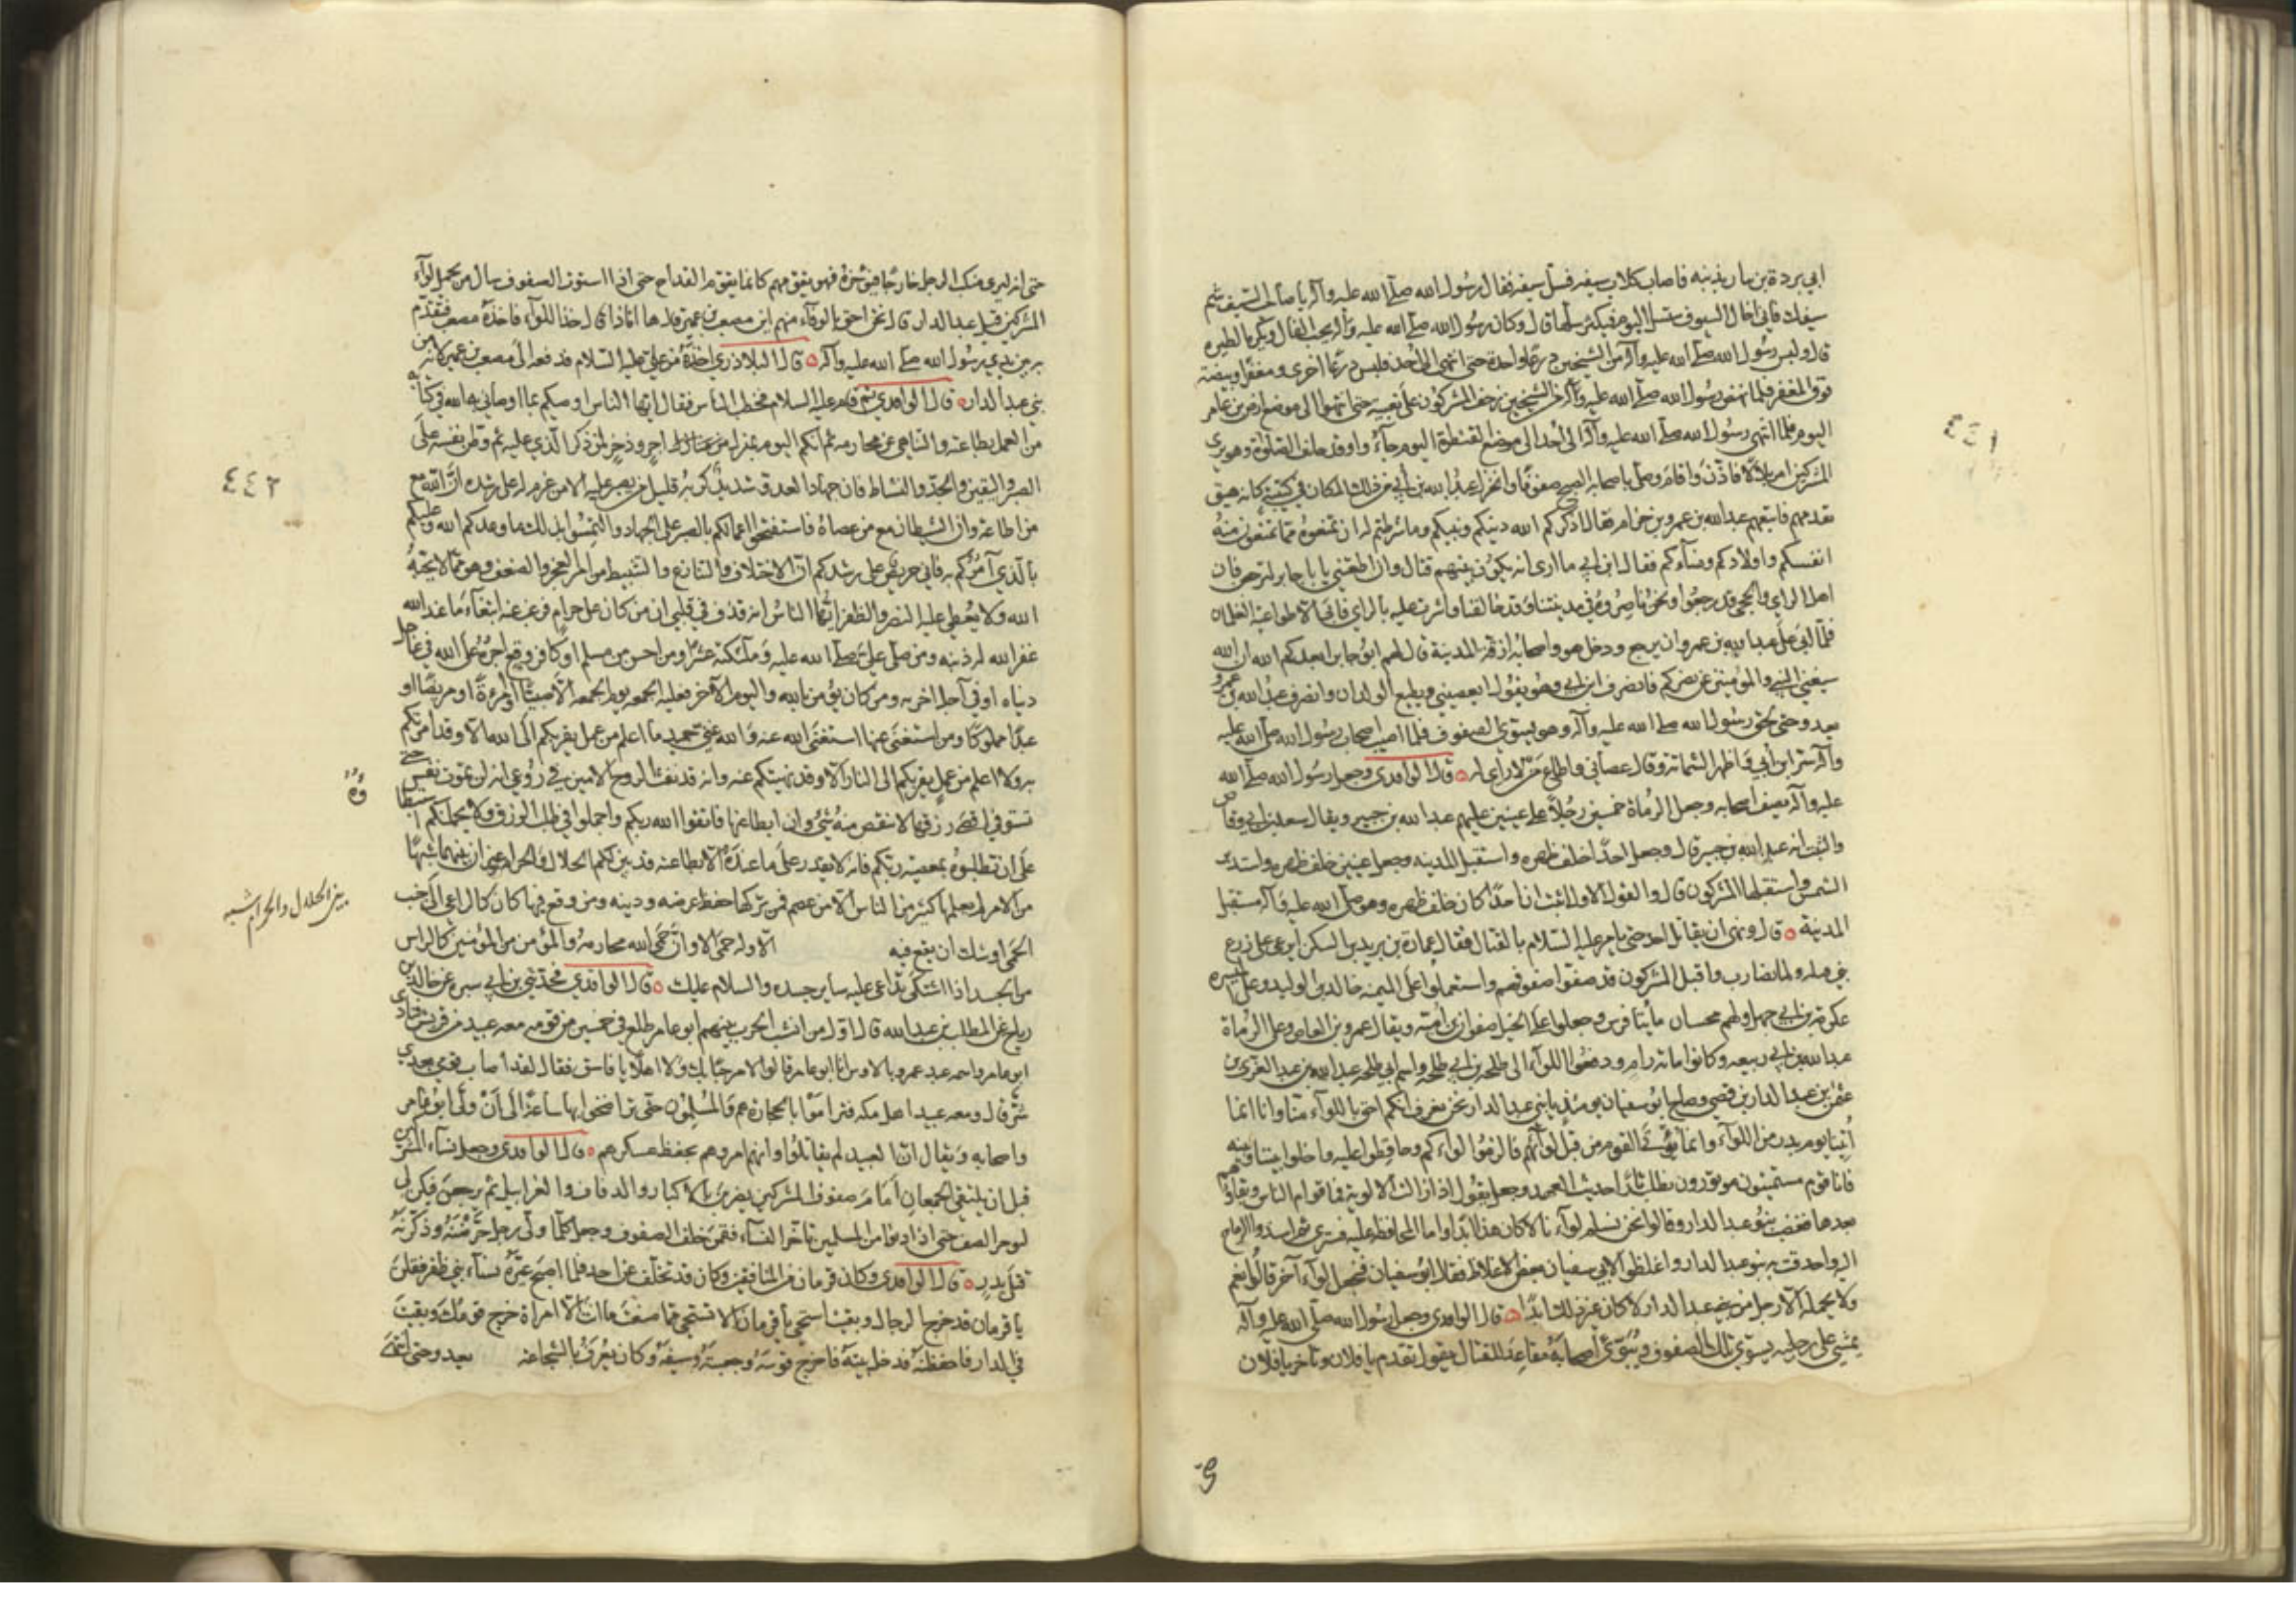 ابي بردة بن نيار بذنبه فاصاب كلاب سيفه فسل سيفه فقال رسول الله صلى الله عليه وآله يا صاحب السيف شم
سيفك فاني اخال السيوف ستسل اليوم فيكثر سلها قال وكان رسول الله صلى الله عليه وآله يحب الفال ويكره الطيرة
قال ولبس رسول الله صلى الله عليه وآله من الشيخين درعا واحدة حتى انتهى الى احد فلبس درعا اخرى ومغفرا وبيضة
فوق المغفر فلما نهض رسول الله صلى الله عليه وآله من الشيخين زحف المشركون على تعبية حتى انتهوا الى موضع ارض بن عامر
اليوم فلما انتهى رسول الله صلى الله عليه وآله الى احد الى موضع القنطرة اليوم جاء وقد حانت الصلوة وهو يرى
المشركين امر بلالا فاذن واقام وصلى باصحابه الصبح صفوفا وانخزل عبد الله بن ابي من ذلك المكان في كتيبة كانه هيق
تقدمهم فاتبعهم عبدالله بن عمرو بن حرام فقال اذكركم الله ودينكم ونبيكم وما شرطتم له ان تمنعوه مما تمنعون منه
انفسكم واولادكم ونساءكم فقال ابن ابي ما ارى انه يكون بينهم قتال وان اطعتني يا ابا جابر لترجعن فان
اهل الراي والحجى قد رجعوا ونحن ناصروه في مدينتنا وقد خالفنا واشرت عليه بالراي فابى الا طواعية الغلمان
فلما ابى على عبد الله بن عمرو ان يرجع ودخل هو واصحابه ازقة المدينة قال لهم ابو جابر ابعدكم الله ان الله
سيغني النبي والمؤمنين عن نصركم فانصرف ابن ابي وهو يقول ايعصيني ويطيع الولدان وانصرف عبد الله بن عمرو
يعدو حتى لحق رسول الله صلى الله عليه وآله وهو يسوي الصفوف فلما اصيب اصحاب رسول الله صلى الله عليه
وآله سر ابن ابي واظهر الشماتة وقال عصاني واطاع من لا راي له ٥ قال الواقدي وجعل رسول الله صلى الله
عليه وآله يصف اصحابه وجعل الرماة خمسين رجلا على عينين عليهم عبد الله بن جبير ويقال سعد بن ابي وقاص
والثبت انه عبد الله بن جبير قال وجعل احدا خلف ظهره واستقبل المدينة وجعل عينين خلف ظهره واستدبر
الشمس واستقبلها المشركون قال والقول الاول اثبت ان احدا كان خلف ظهره وهو صلى الله عليه وآله مستقبل
المدينة ٥ قال ونهى ان يقاتل احد حتى يامر عليه السلام بالقتال فقال عمارة بن يزيد بن السكن اترعى على زرع
بني قيلة ولما نضارب واقبل المشركون قد صفوا صفوفهم واستعملوا على الميمنة خالد بن الوليد وعلى الميسرة
عكرمة بن ابي جهل ولهم مجنبتان مايتا فرس وجعلوا على الخيل صفوان بن امية ويقال عمرو بن العاص وعلى الرماة
عبد الله بن ابي ربيعه وكانوا مائة رام ودفعوا اللواء الى طلحة بن ابي طلحة واسم ابي طلحة عبد الله بن عبد العزى بن
عثمن بن عبد الدار بن قصي وصاح ابو سفيان يومئذ يا بني عبد الدار نحن نعرف انكم احق باللواء منا وانا انما
اتينا يوم بدر من اللواء وانما يؤتى القوم من قبل لوائهم فالزموا لواءكم وحافظوا عليه وخلوا بيننا وبينه
فانا قوم مستميتون موتورون نطلب ثارا حديث العهد وجعل يقول اذا زالت الالوية فما قوام الناس وبقاؤهم
بعدها فغضب بنو عبد الدار وقالوا نحن نسلم لواءنا لا كان هذا ابدا واما المحافظة عليه فسترى ثم اسندوا الرماح
اليه واحدقت به بنو عبد الدار واغلظوا لابي سفيان بعض الاغلاظ فقال ابو سفيان فنجعل لواء آخر قالوا نعم
ولا يحمله الا رجل من بني عبد الدار لا كان غير ذلك ابدا ٥ قال الواقدي وجعل رسول الله صلى الله عليه وآله
يمشي على رجليه يسوي تلك الصفوف ويبوئ اصحابه مقاعد للقتال يقول تقدم يا فلان وتاخر يا فلان
٤٤١
حتى انه ليرى منكب الرجل خارجا فيؤخره فهو يقومهم كانما يقوم القداح حتى اذا استوت الصفوف سال من يحمل لواء
المشركين قيل عبد الدار قال نحن احق بالوفاء منهم اين مصعب بن عمير قال ها اناذا قال خذ اللواء فاخذه مصعب فتقدم
به بين يدي رسول الله صلى الله عليه وآله ٥ قال البلاذري اخذه من علي عليه السلام فدفعه الى مصعب بن عمير لانه من
بني عبد الدار ٥ قال الواقدي ثم قام عليه السلام فخطب الناس فقال ايها الناس اوصيكم بما اوصاني به الله في كتابه
من العمل بطاعته والتناهي عن محارمه ثم انكم اليوم بمنزل اجر وذخر لمن ذكر الذي عليه ثم وطن نفسه على
الصبر واليقين والجد والنشاط فان جهاد العدو شديد كربه قليل من يصبر عليه الا من عزم له على رشده ان الله مع
من اطاعه وان الشيطان مع من عصاه فاستفتحوا اعمالكم بالصبر على الجهاد والتمسوا بذلك ما وعدكم الله وعليكم
بالذي آمركم به فاني حريص على رشدكم ان الاختلاف والتنازع والتثبيط من امر العجز والضعف وهو مما لا يحبه
الله ولا يعطي عليه النصر والظفر ايها الناس انه قذف في قلبي ان من كان على حرام فرغب عنه ابتغاء ما عند الله
غفر الله له ذنبه ومن صلى علي صلى الله عليه وملائكته عشرا ومن احسن من مسلم او كافر وقع اجره على الله في عاجل
دنياه او في آجل اخرته ومن كان يؤمن بالله واليوم الآخر فعليه الجمعه يوم الجمعه الا صبيا او امرءة او مريضا او
عبدا مملوكا ومن استغنى عنها استغنى الله عنه والله غني حميد ما اعلم من عمل يقربكم الى الله الا وقد امرتكم
به ولا اعلم من عمل يقربكم الى النار الا وقد نهيتكم عنه وانه قد نفث الروح الامين في روعي انه لن تموت نفس حتى
تستوفي اقصى رزقها لا ينقص منه شئ وان ابطا عنها فاتقوا الله ربكم واجملوا في طلب الرزق ولا يحملنكم استبطاوه
على ان تطلبوه بمعصية ربكم فانه لا يقدر على ما عنده الا بطاعته قد بين لكم الحلال والحرام غير ان بينهما شبها
من الامر لم يعلمها كثير من الناس الا من عصم فمن تركها حفظ عرضه ودينه ومن وقع فيها كان كالراعي الى جنب
الحمى اوشك ان يقع فيه الا وله حمى الا وان حمى الله محارمه والمؤمن من المؤمنين كالراس
من الجسد اذا اشتكى تداعى عليه ساير جسده والسلام عليك ٥ قال الواقدي فحدثني بن ابي سبره عن خالد بن
رباح عن المطلب بن عبد الله قال اول من انشب الحرب بينهم ابو عامر طلع في خمسين من قومه معه عبيد من قريش فنادى
ابو عامر واسمه عبد عمرو يا للاوس انا ابو عامر قالوا لا مرحبا بك ولا اهلا يا فاسق فقال لقد اصاب قومي بعدي
شر قال ومعه عبيد اهل مكه فتراموا بالحجارة هم والمسلمون حتى تراضخوا بها ساعة الى ان ولى ابو عامر
واصحابه ويقال ان العبيد لم يقاتلوا وانهم امروهم بحفظ عسكرهم ٥ قال الواقدي وجعل نساء المشركين
قبل ان يلتقي الجمعان امام صفوف المشركين يضربن بالاكبار والدفاف والغرابيل ثم يرجعن فيكن الى
موخر الصف حتى اذا دنوا من المسلمين تاخر النساء فقمن خلف الصفوف وجعل كلما ولى رجل حرضنه وذكرنه
قتلى بدر ٥ قال الواقدي وكان قزمان من المنافقين وكان قد تخلف عن احد فلما اصبح عيره نساء بني ظفر فقلن
يا قزمان قد خرج الرجال وبقيت استحي يا قزمان الا تستحي مما صنعت ما انت الا امراة خرج قومك وبقيت
في الدار فاحفظنه فدخل بيته فاخرج قوسه وجعبته وسيفه وكان يعرف بالشجاعة يعدو حتى انتهى
٤٤٢
وه
بين الحلال والحرام شبه